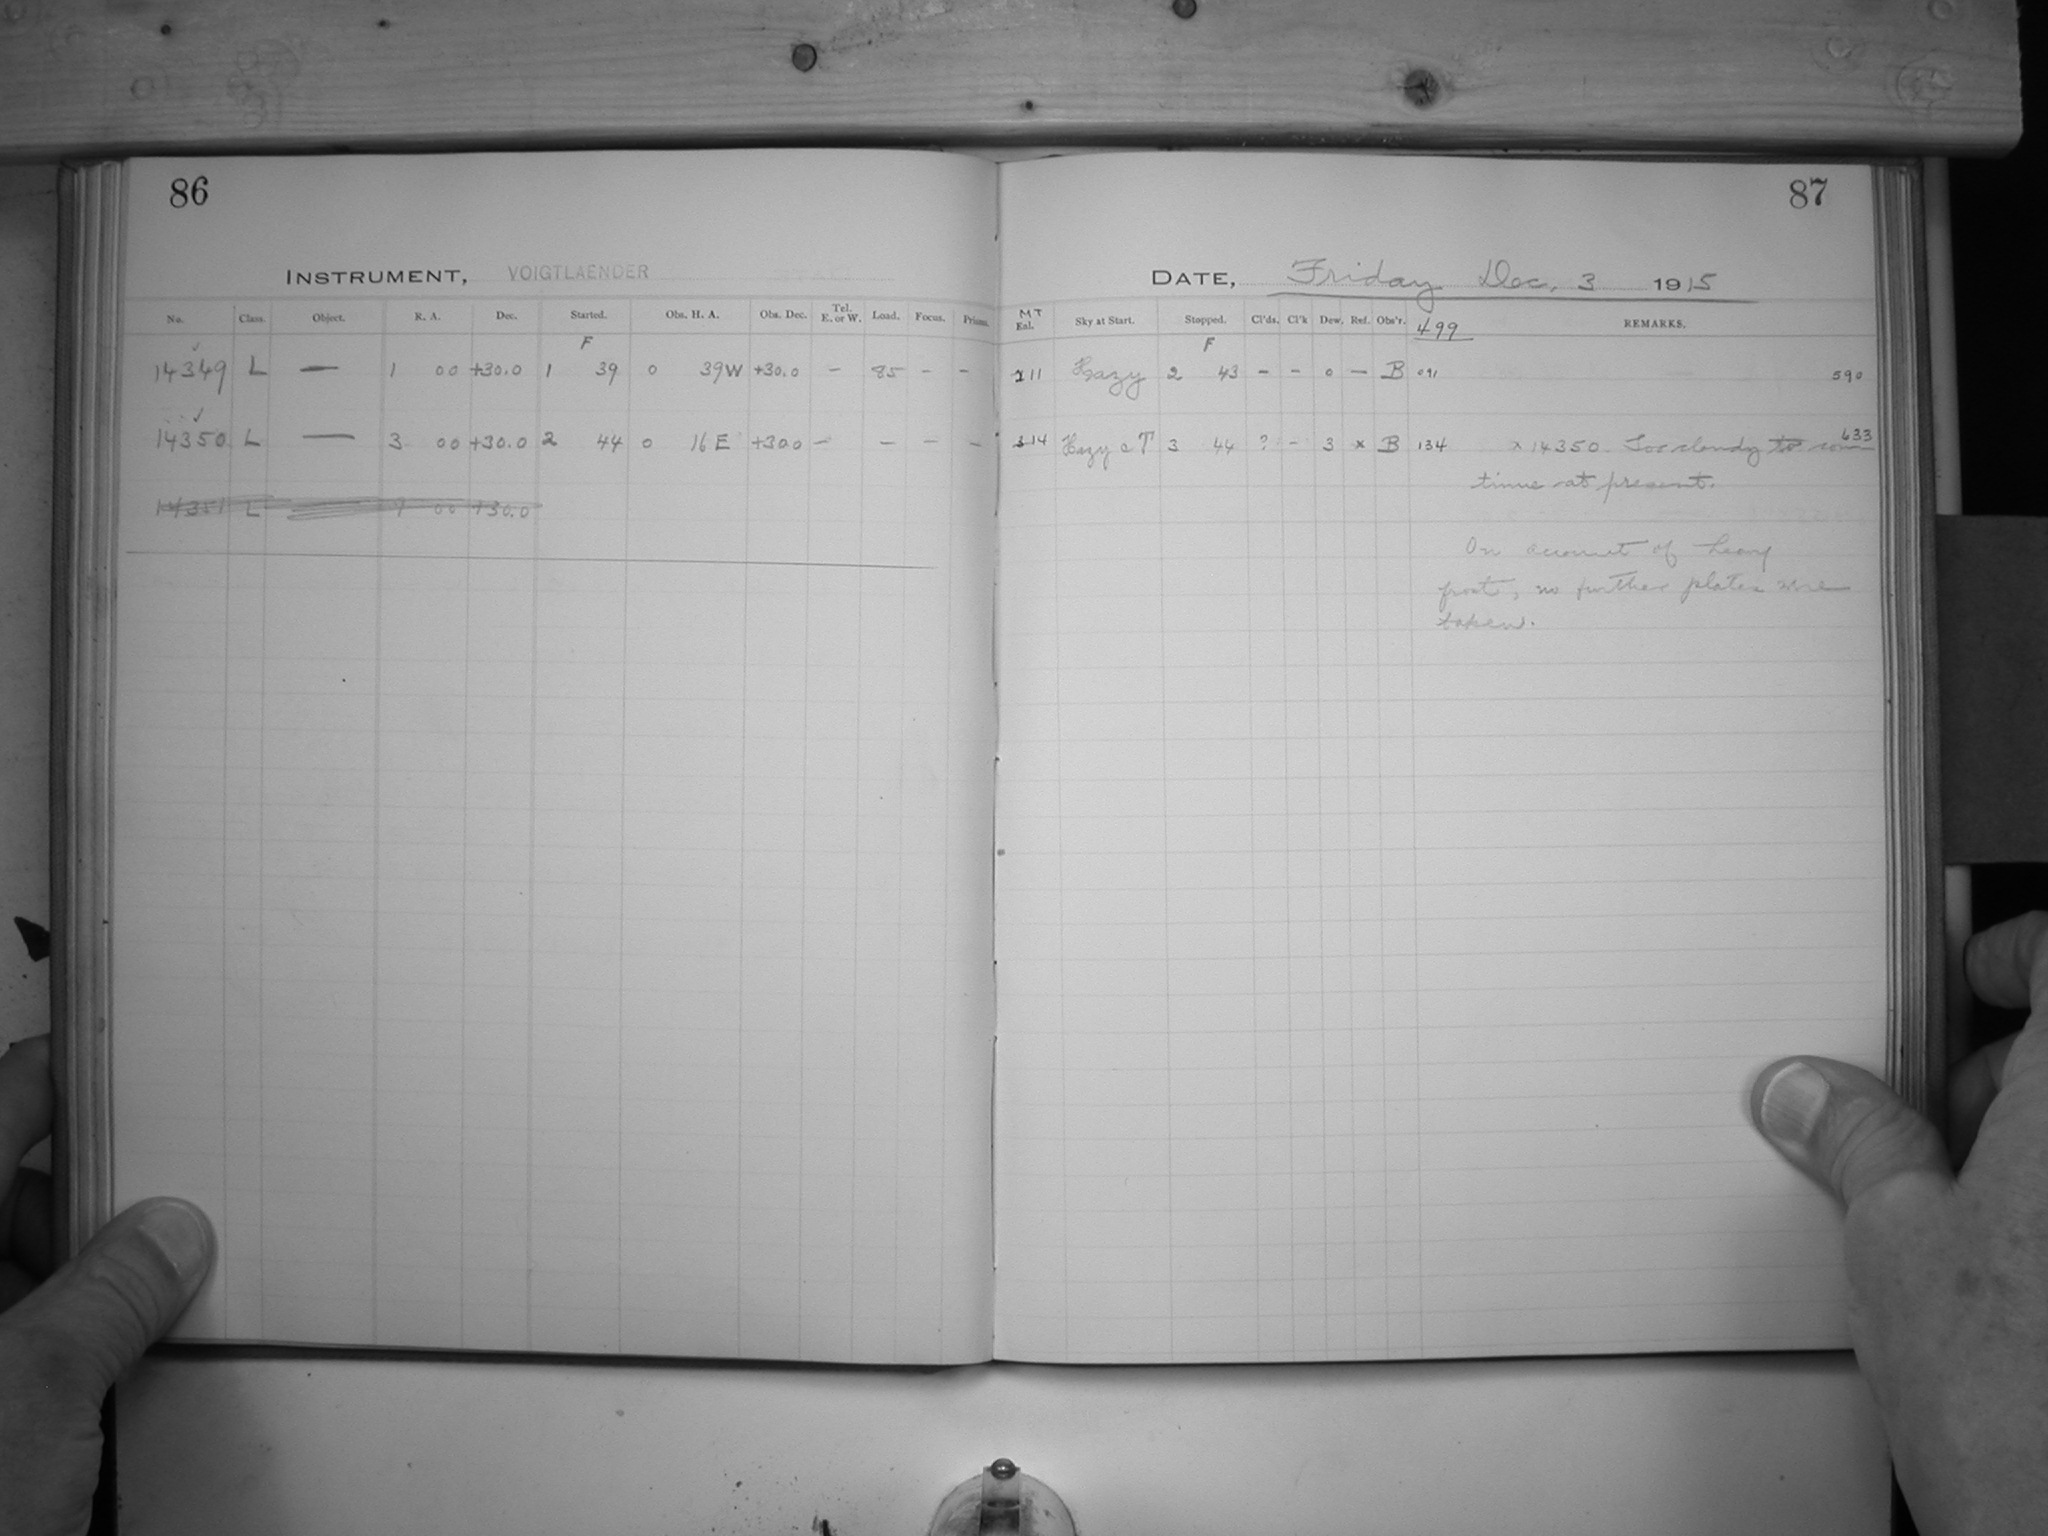 86
INSTRUMENT, VOIGTLAENDER
No. Class. Object. R. A. Dec. Started. Obs. H. A. Obs. Dec. Tel. E. or W. Load. Focus. Prisms.
F
14349 L — 1 00 +30.0 1 39 0 39W +30.0 — 85 - -
14350 L — 3 00 +30.0 2 44 0 16 E +30.0 — - - -
14351 L 00 +30.0
87
DATE, Friday Dec. 3 1915
MT
Eal. Sky at Start. Stopped. Cl'ds. Cl'k Dew. Ref. Obs'r. 499 REMARKS.
F
11 Hazy 2 43 - - 0 — B 091 590
14 Hazy c T 3 44 ? - 3 x B 134 x 14350. Too cloudy to con 633
tinue at present.
On account of heavy
frost, no further plates were
taken.